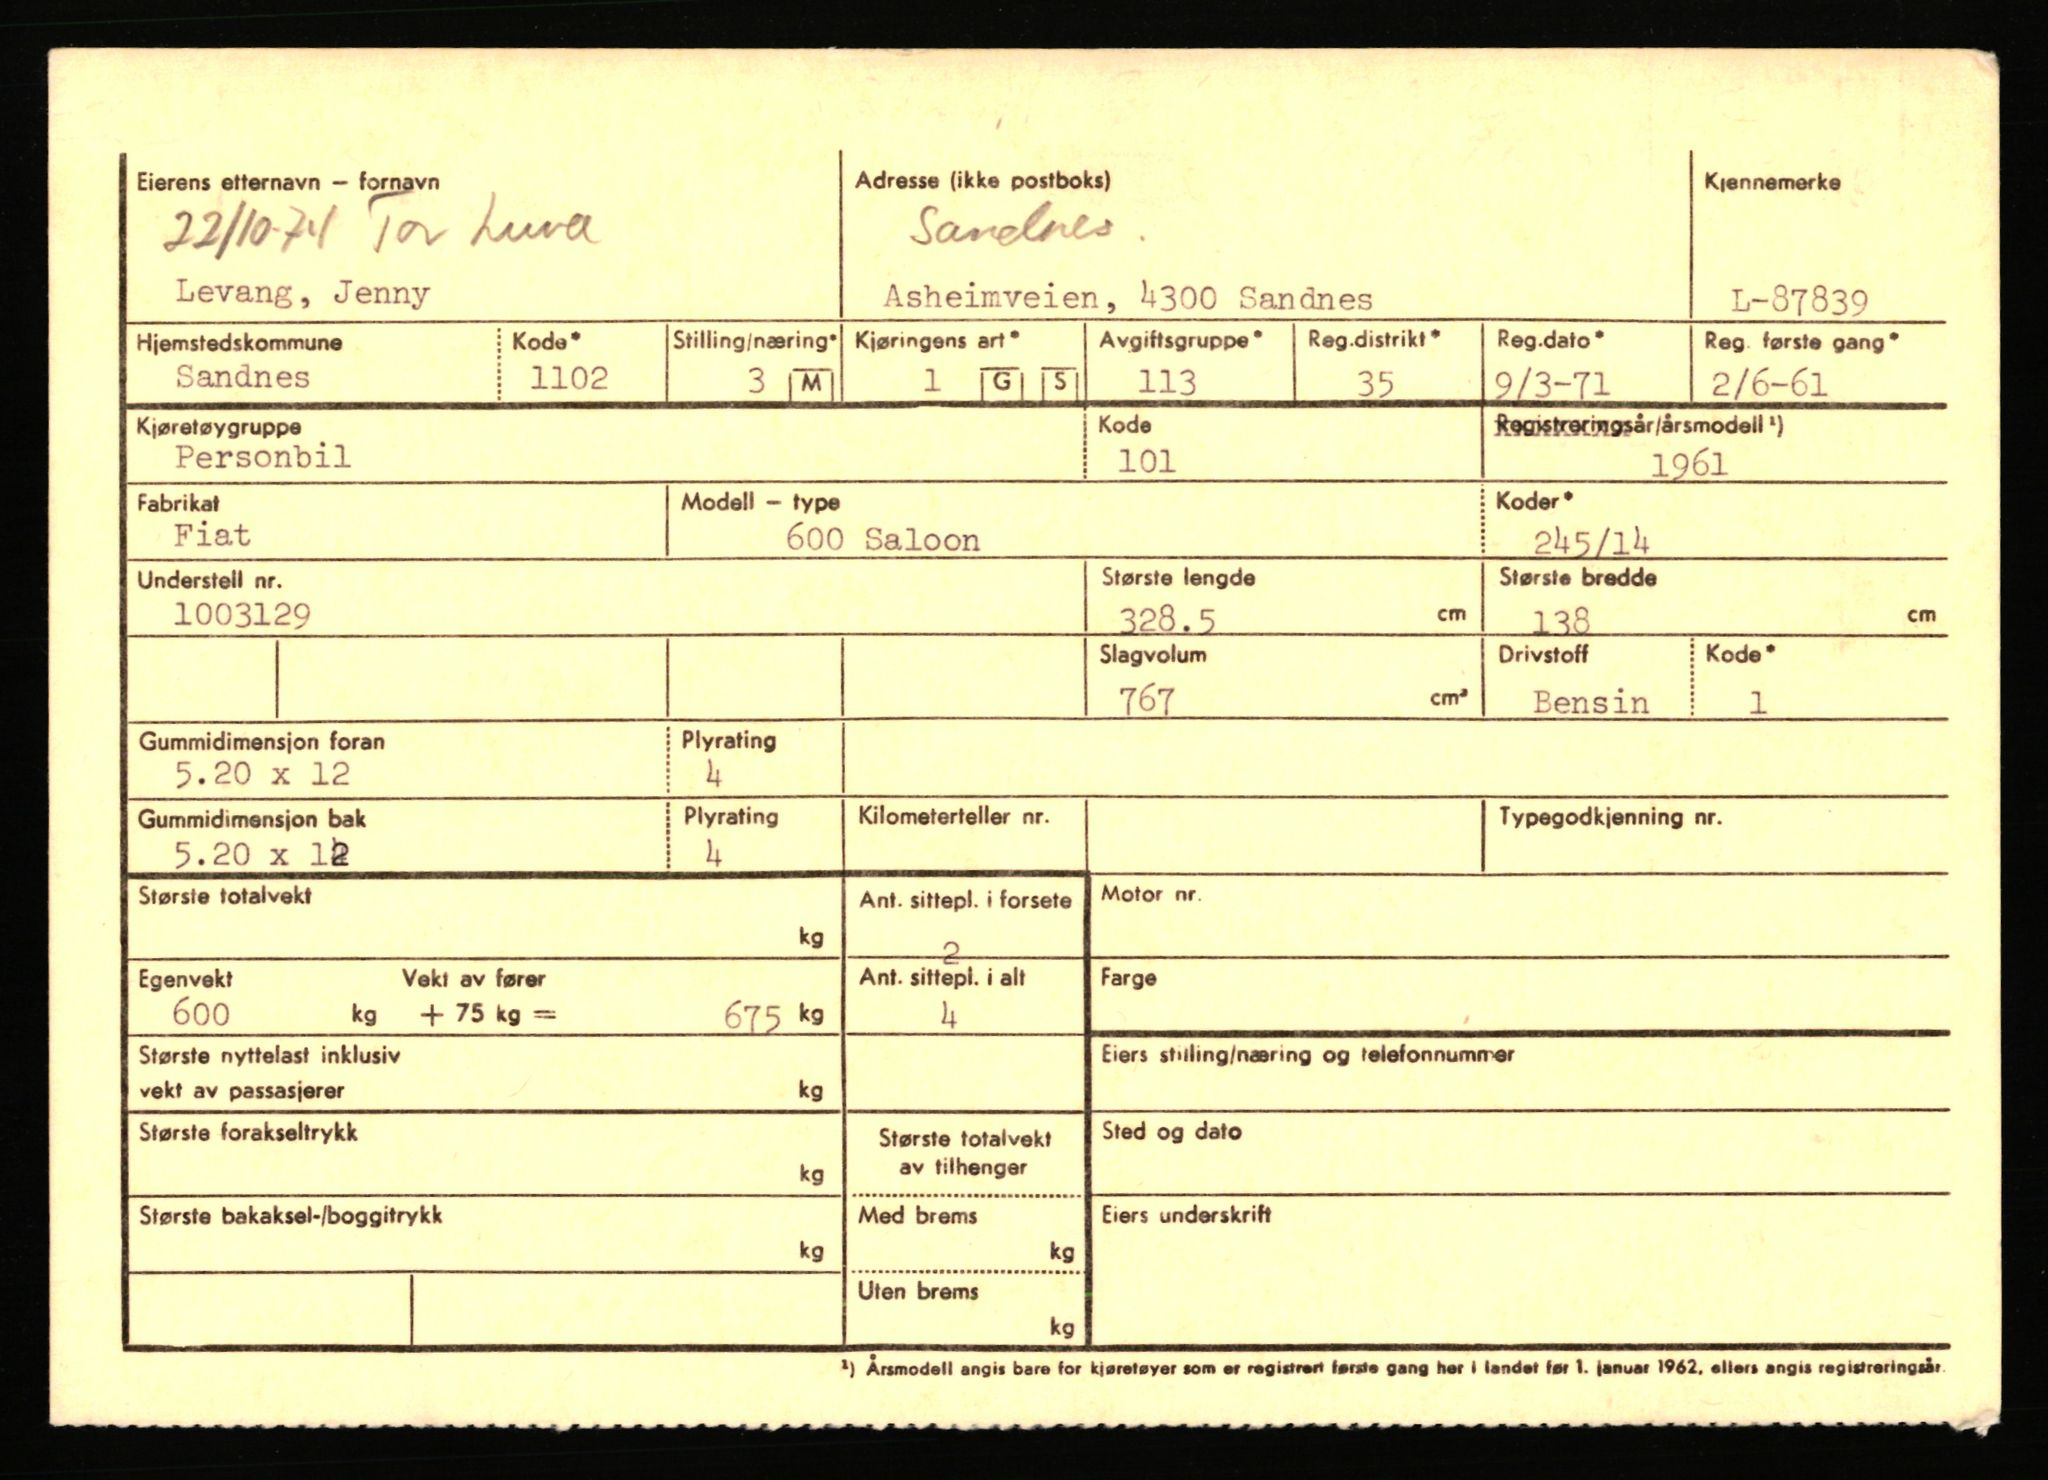 Eierens etternavn – fornavn
Adresse (ikke postboks)
Kjennemerke
22/10-74 Tor Lura
Sandnes.
Levang, Jenny
Asheimveien, 4300 Sandnes
L-87839
Hjemstedskommune
Kode*
Stilling/næring*
Kjøringens art*
Avgiftsgruppe*
Reg.distrikt*
Reg.dato*
Reg. første gang*
Sandnes
1102
3 M
1 G S
113
35
9/3-71
2/6-61
Kjøretøygruppe
Kode
Registreringsår/årsmodell ¹)
Personbil
101
1961
Fabrikat
Modell – type
Koder*
Fiat
600 Saloon
245/14
Understell nr.
Største lengde
Største bredde
1003129
328.5 cm
138 cm
Slagvolum
Drivstoff
Kode*
767 cm³
Bensin
1
Gummidimensjon foran
Plyrating
5.20 x 12
4
Gummidimensjon bak
Plyrating
Kilometerteller nr.
Typegodkjenning nr.
5.20 x 12
4
Største totalvekt
kg
Ant. sittepl. i forsete
2
Motor nr.
Egenvekt
Vekt av fører
Ant. sittepl. i alt
Farge
600 kg + 75 kg = 675 kg
4
Største nyttelast inklusiv
vekt av passasjerer kg
Eiers stilling/næring og telefonnummer
Største forakseltrykk
kg
Største totalvekt
av tilhenger
Sted og dato
Største bakaksel-/boggitrykk
kg
Med brems
kg
Eiers underskrift
Uten brems
kg
¹) Årsmodell angis bare for kjøretøyer som er registrert første gang her i landet før 1. januar 1962, ellers angis registreringsår.